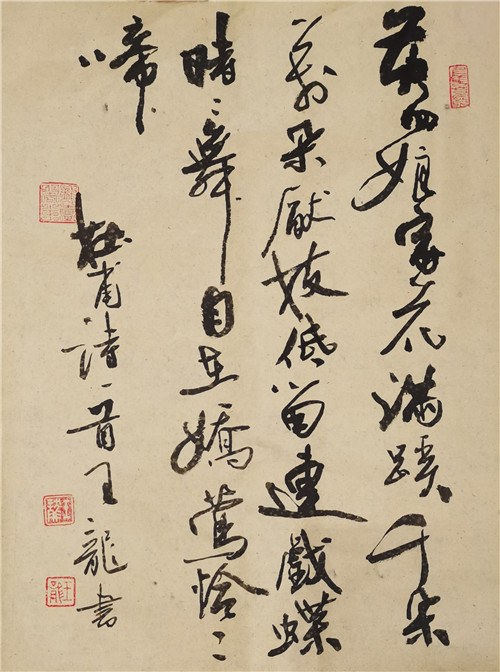 黄四娘家花滿蹊千朵
萬朵厭枝低留連戲蝶
時〻舞自在嬌鶯恰〻
啼
杜甫詩一首王龍書